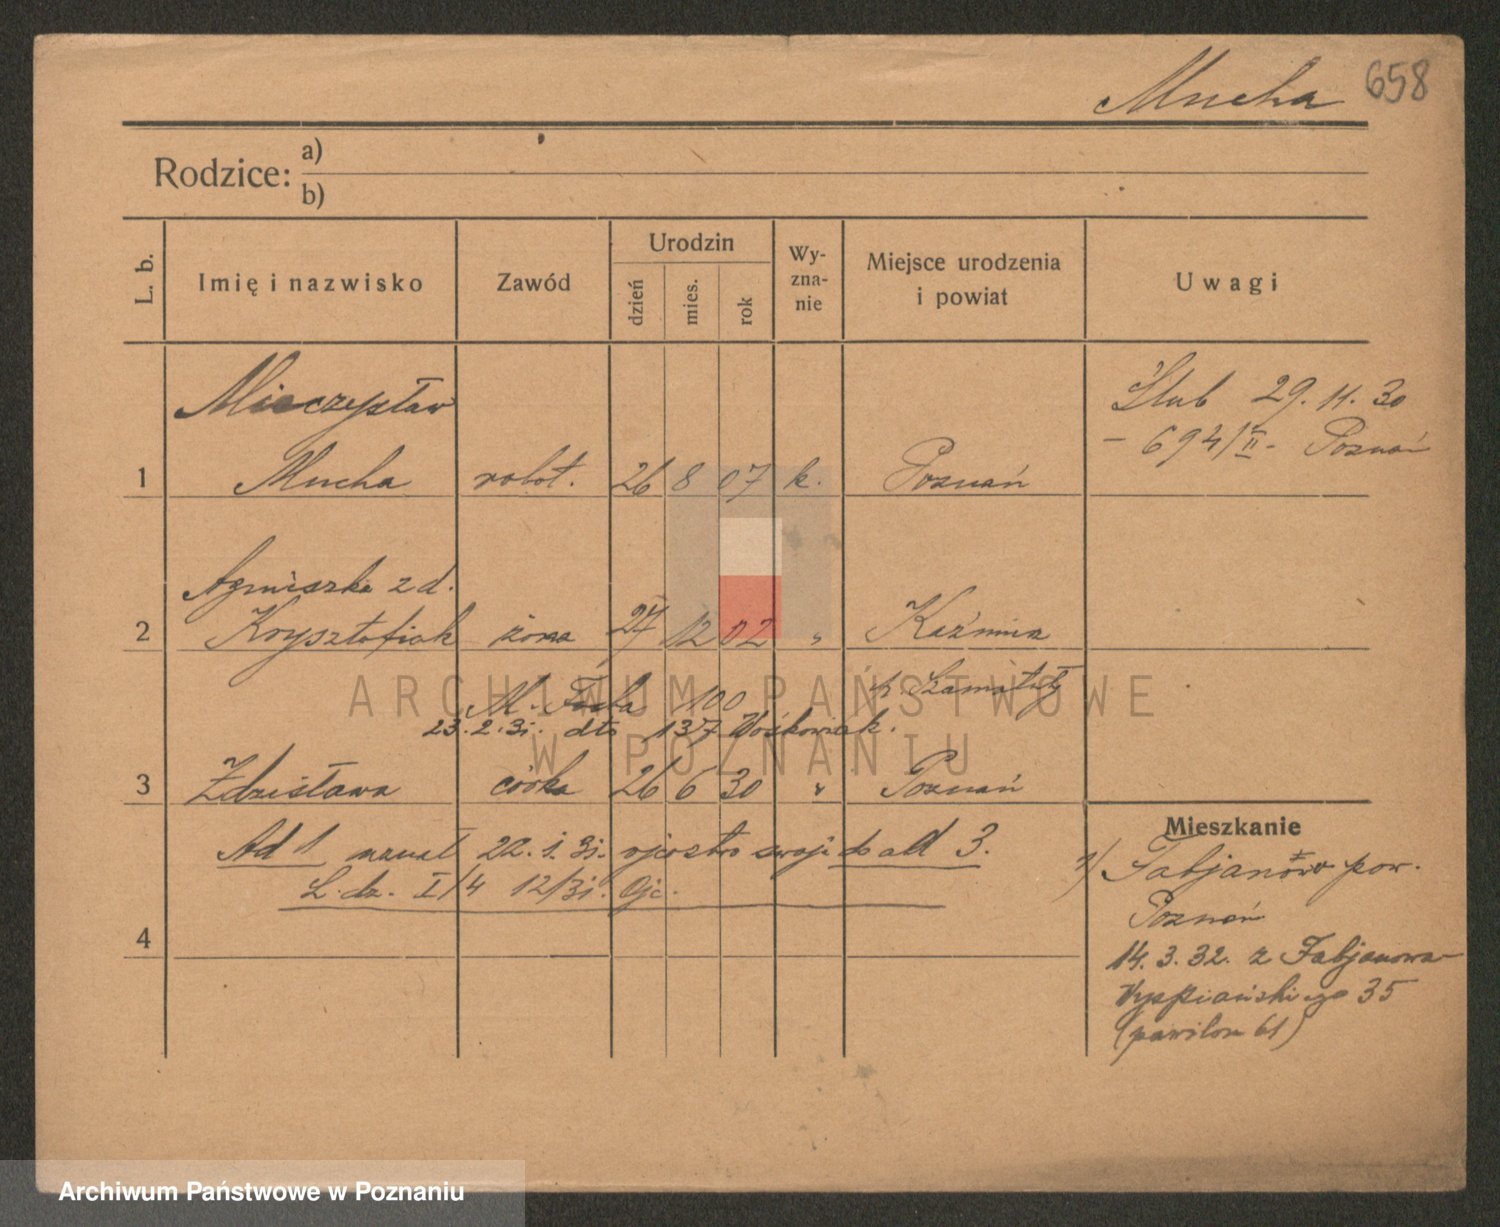 Mucha 658
Rodzice: a)
b)
L. b.
Imię i nazwisko
Zawód
Urodzin
dzień
mies.
rok
Wy-
zna-
nie
Miejsce urodzenia
i powiat
Uwagi
Mieczysław
1 Mucha robot. 26 8 07 k. Poznań
Ślub 29. 11. 30
- 694/II - Poznań
Agnieszka z d.
2 Krysztofiak żona 27 12 02 " Kaźmierz
p. Szamotuły
M. 100
23. 2. 31. dto 137
3 Zdzisława córka 26 6 30 " Poznań
Ad 1 uznał 22. 1. 31. ojcostwo swoje do ad 3.
L. dz. I/4 12/31.
4
Mieszkanie
1) Fabjanowo pow.
Poznań
14. 3. 32. z Fabjanowa
Wyspiańskiego 35
(pawilon 61)
ARCHIWUM PAŃSTWOWE
W POZNANIU
Archiwum Państwowe w Poznaniu